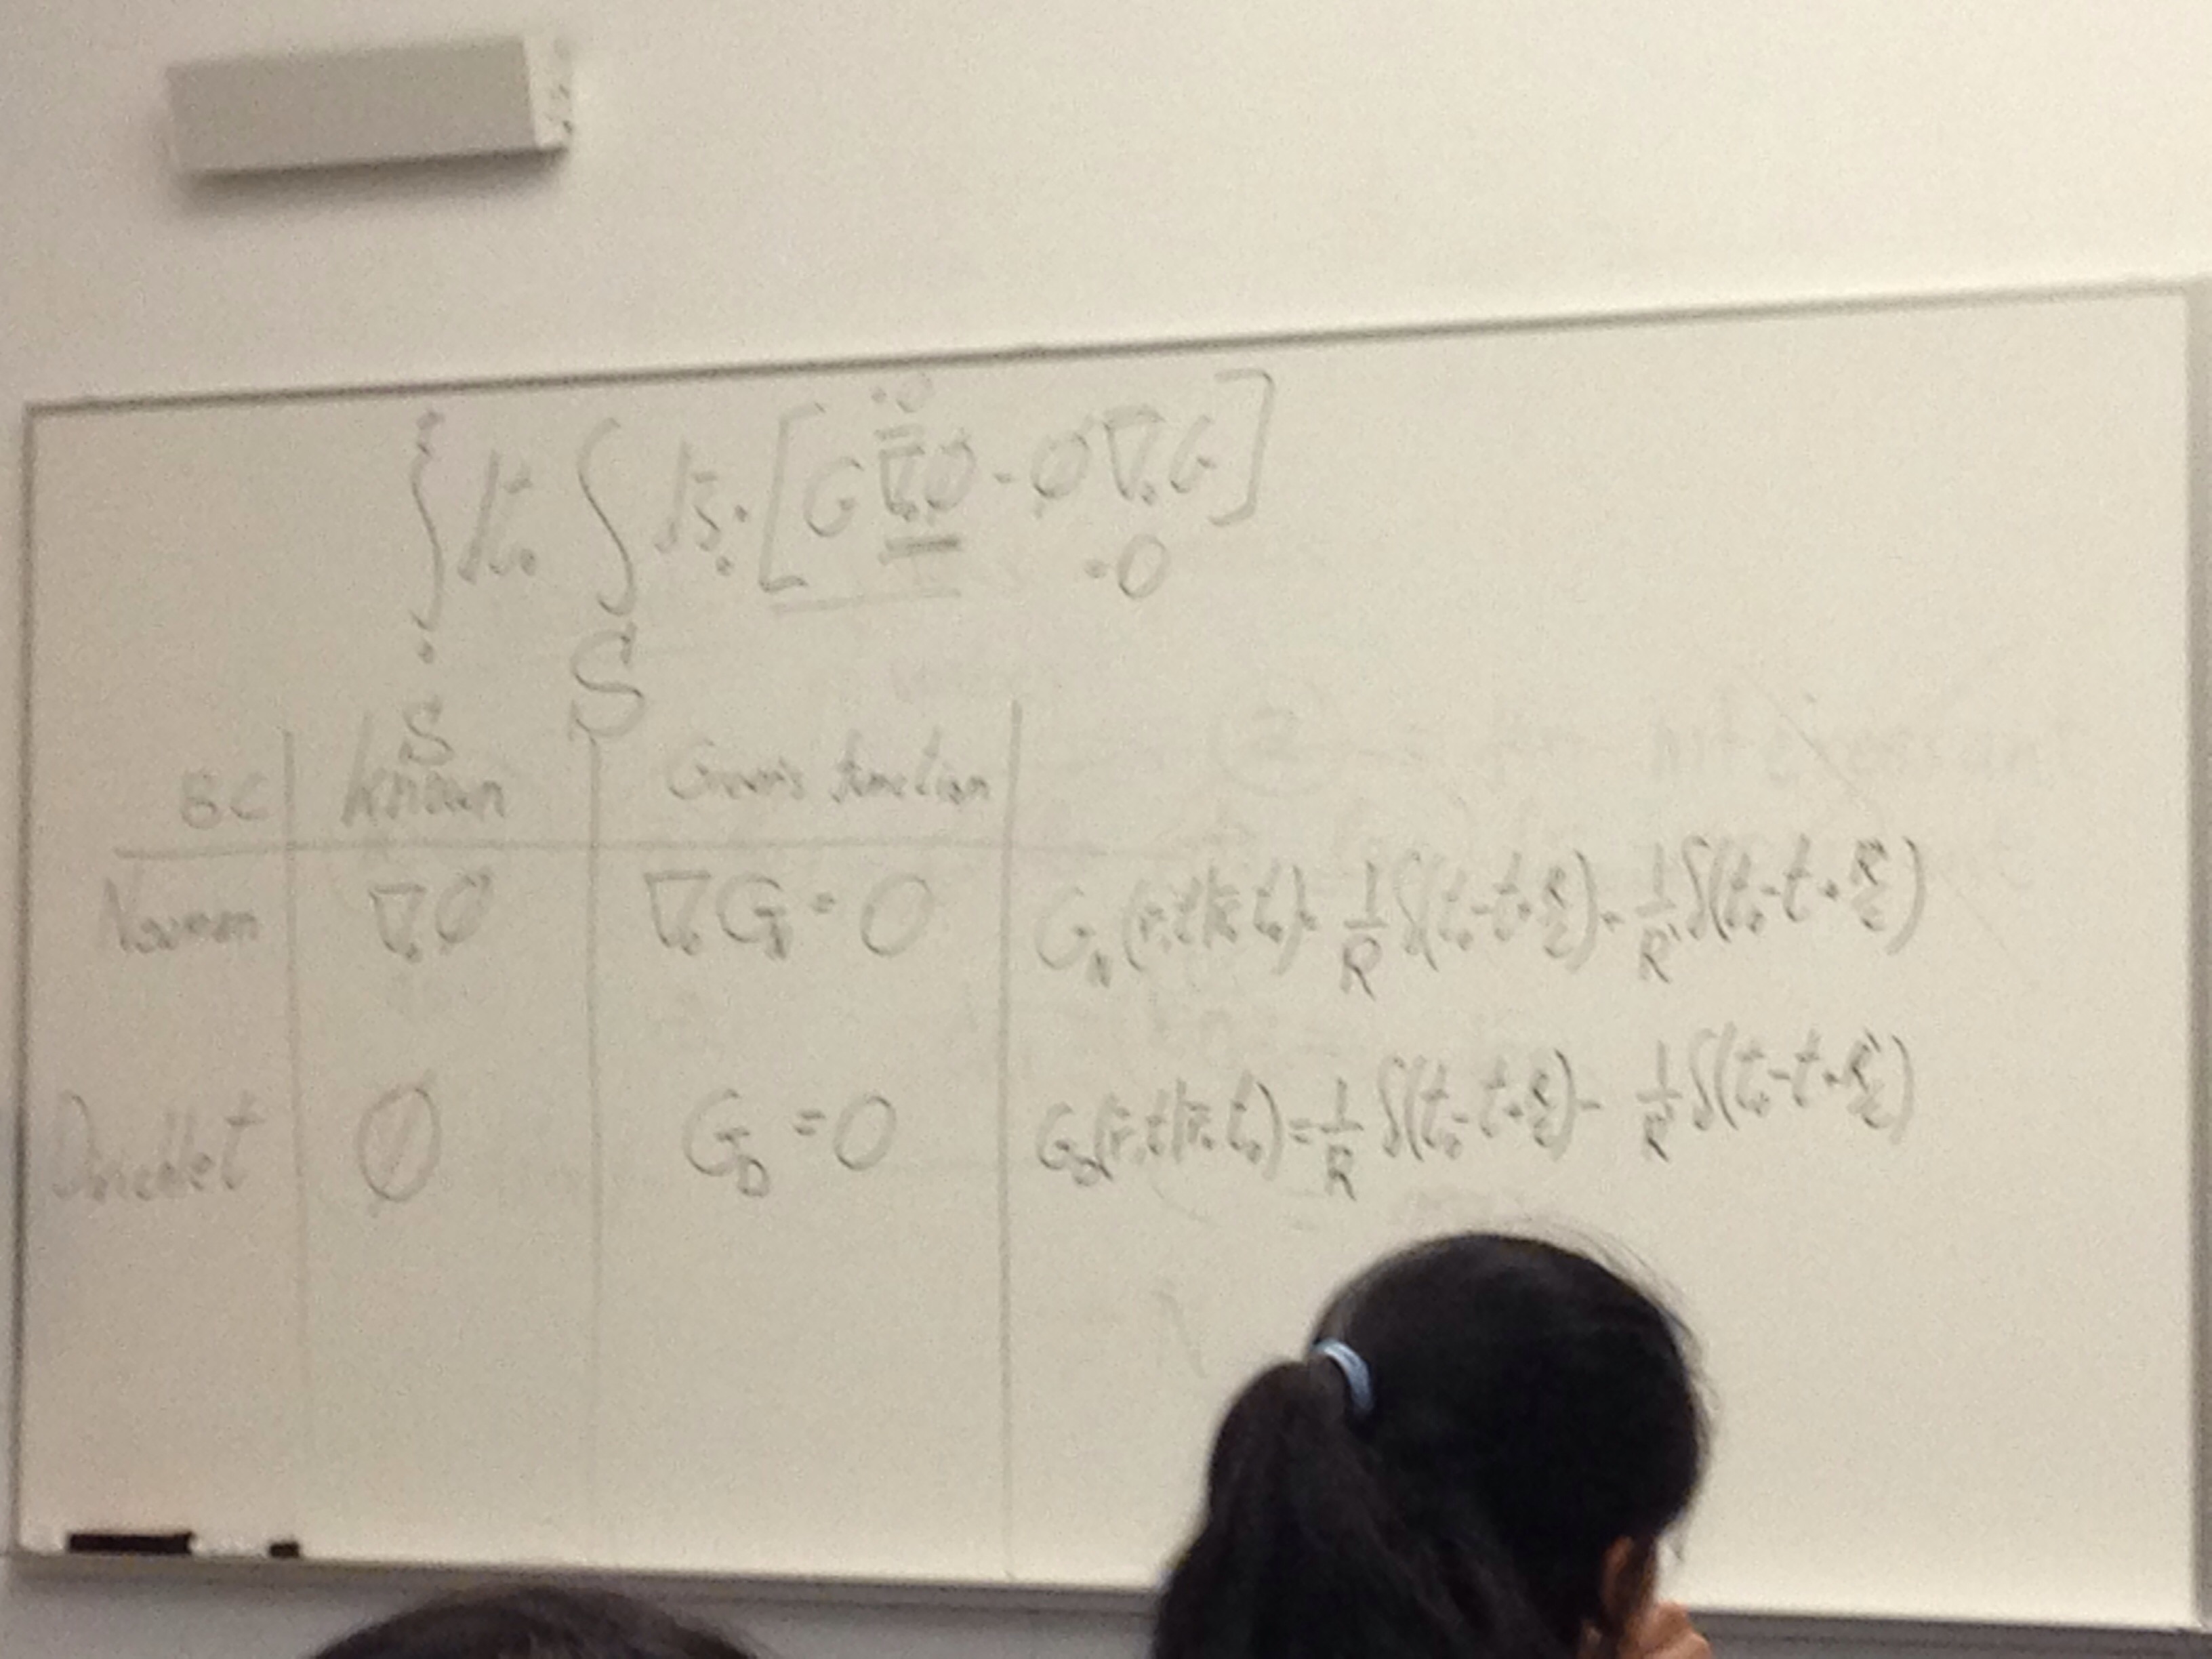 ∫ dt₀ ∫ dS₀ · [G ∇₀Ø - Ø ∇₀G]
S S = 0
BC known Green's function
∇₀Ø ∇₀G_N = 0 G_N(r̄,t|r̄₀,t₀) = 1/R δ(t₀-t+R/c) + 1/R' δ(t₀-t+R'/c)
Dirichlet Ø G_D = 0 G_D(r̄,t|r̄₀,t₀) = 1/R δ(t₀-t+R/c) - 1/R' δ(t₀-t+R'/c)